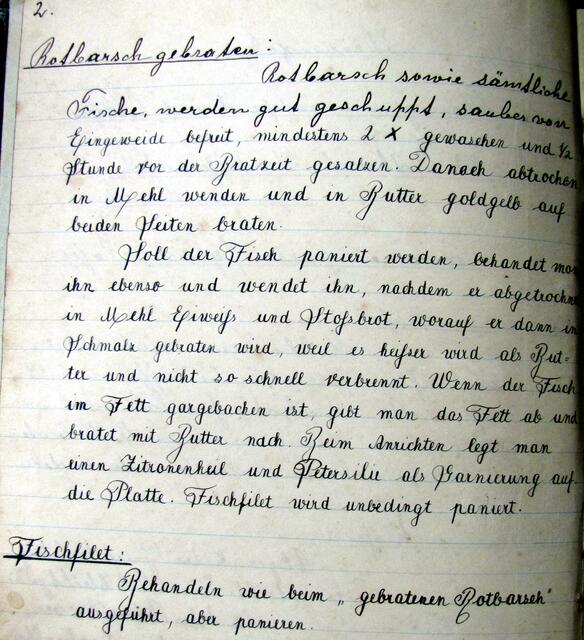 2.
Rotbarsch gebraten:
Rotbarsch sowie sämtliche
Fische, werden gut geschuppt, sauber von
Eingeweide befreit, mindestens 2 x gewaschen und 1/2
Stunde vor der Bratzeit gesalzen. Danach abtrocknen
in Mehl wenden und in Butter goldgelb auf
beiden Seiten braten.
Soll der Fisch paniert werden, behandet man
ihn ebenso und wendet ihn, nachdem er abgetrocknet
in Mehl Eiweiß und Stoßbrot, worauf er dann in
Schmalz gebraten wird, weil es heißer wird als But=
ter und nicht so schnell verbrennt. Wenn der Fisch
im Fett gargebacken ist, gibt man das Fett ab und
bratet mit Butter nach. Beim Anrichten legt man
einen Zitronenkeil und Petersilie als Garnierung auf
die Platte. Fischfilet wird unbedingt paniert.
Fischfilet:
Behandeln wie beim „gebratenen Rotbarsch"
ausgeführt, aber panieren.